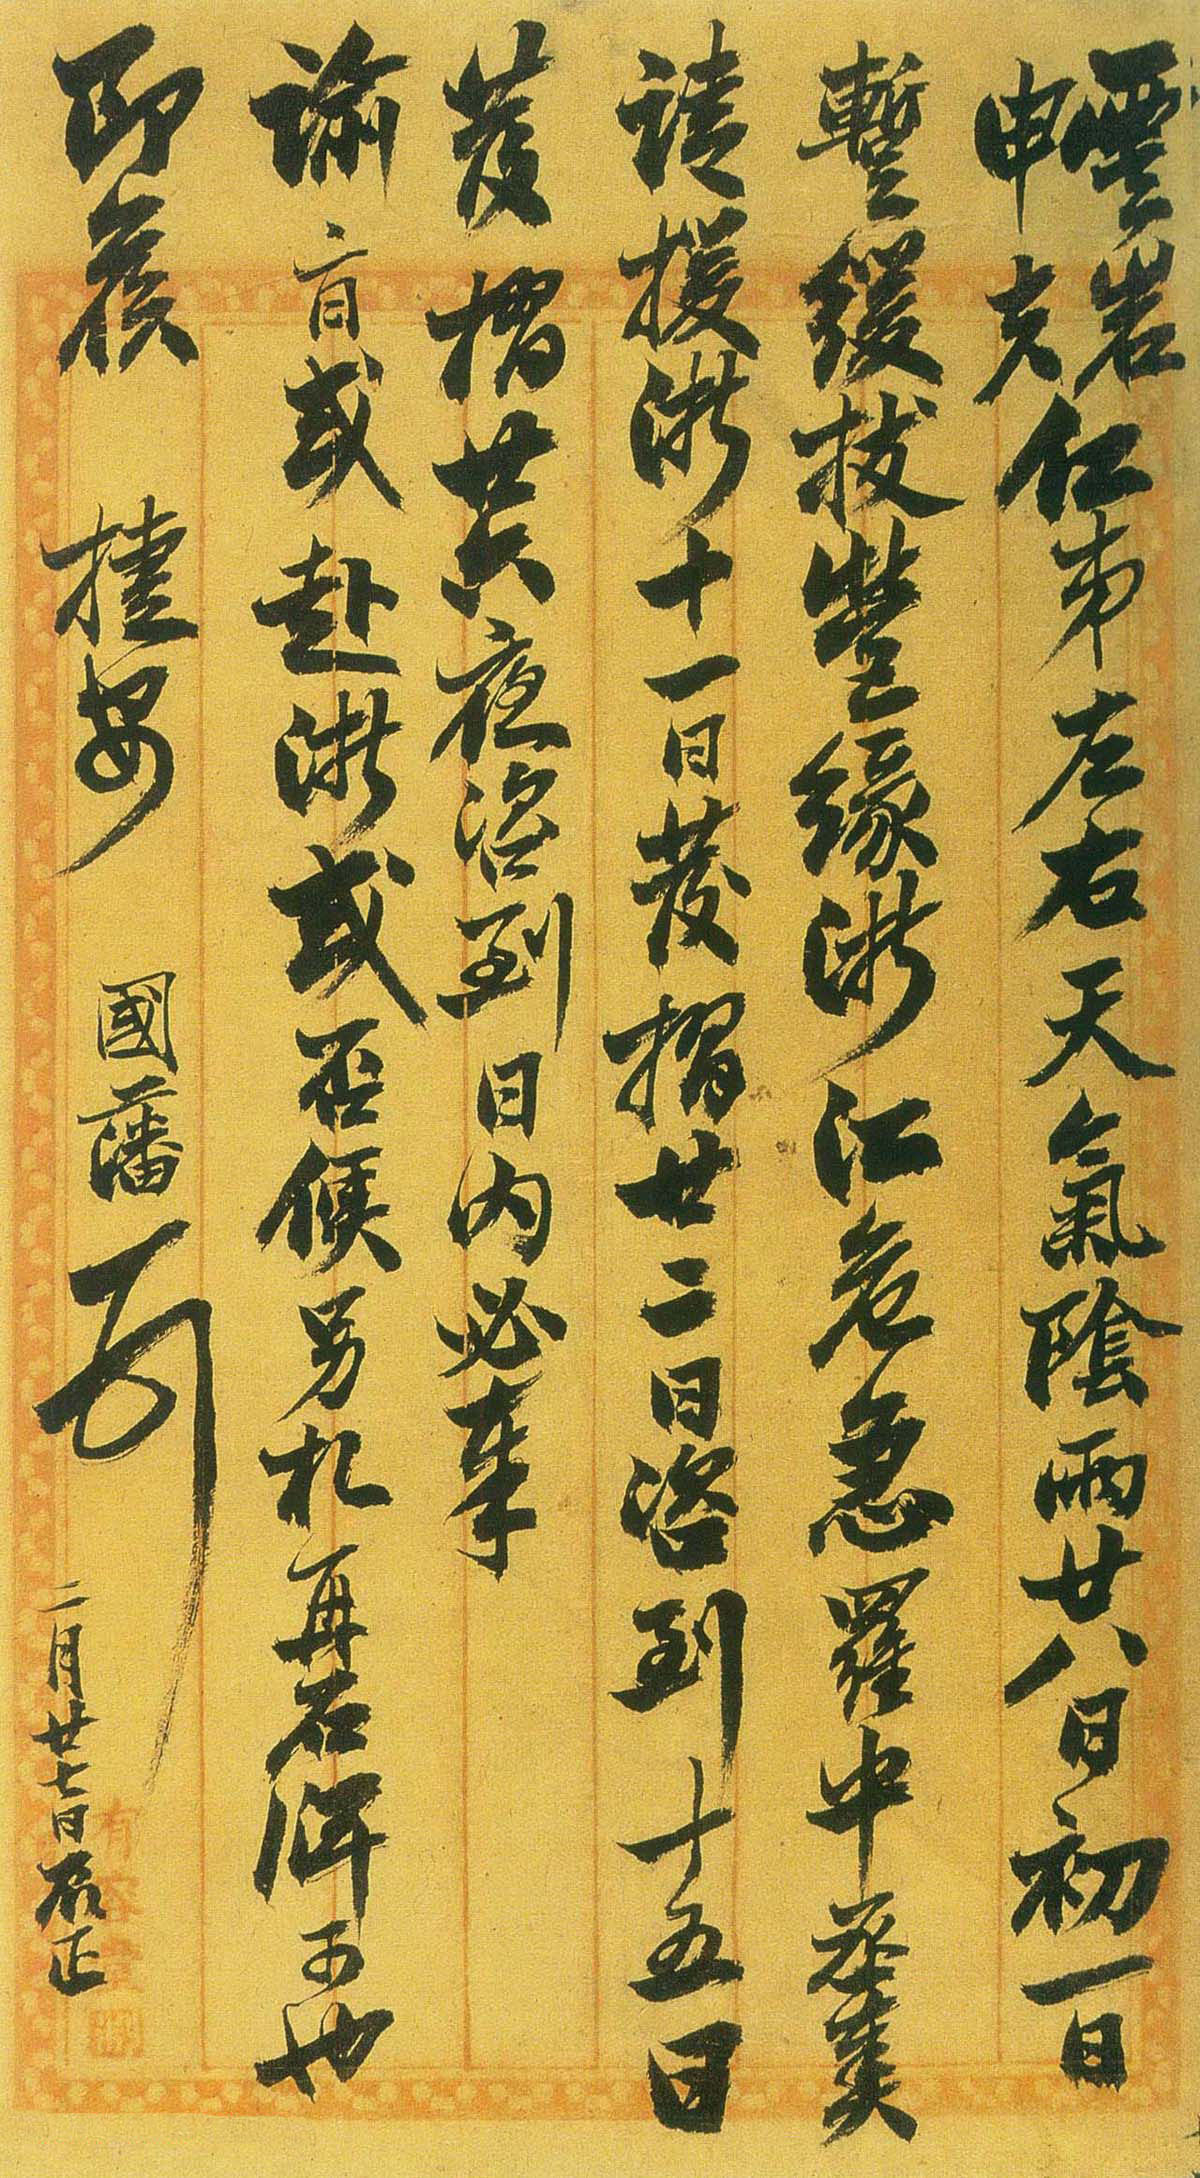 雲岩
申夫仁弟左右天氣陰雨廿八日初一日
暫緩拔營緣浙江危急羅中丞奏
請援浙十一日發摺廿二日咨到十五日
發摺共夜咨到日內必奉
諭旨或赴浙或否候另札再君調可也
即候 捷安 國藩 頓
二月廿七日 正
有容堂